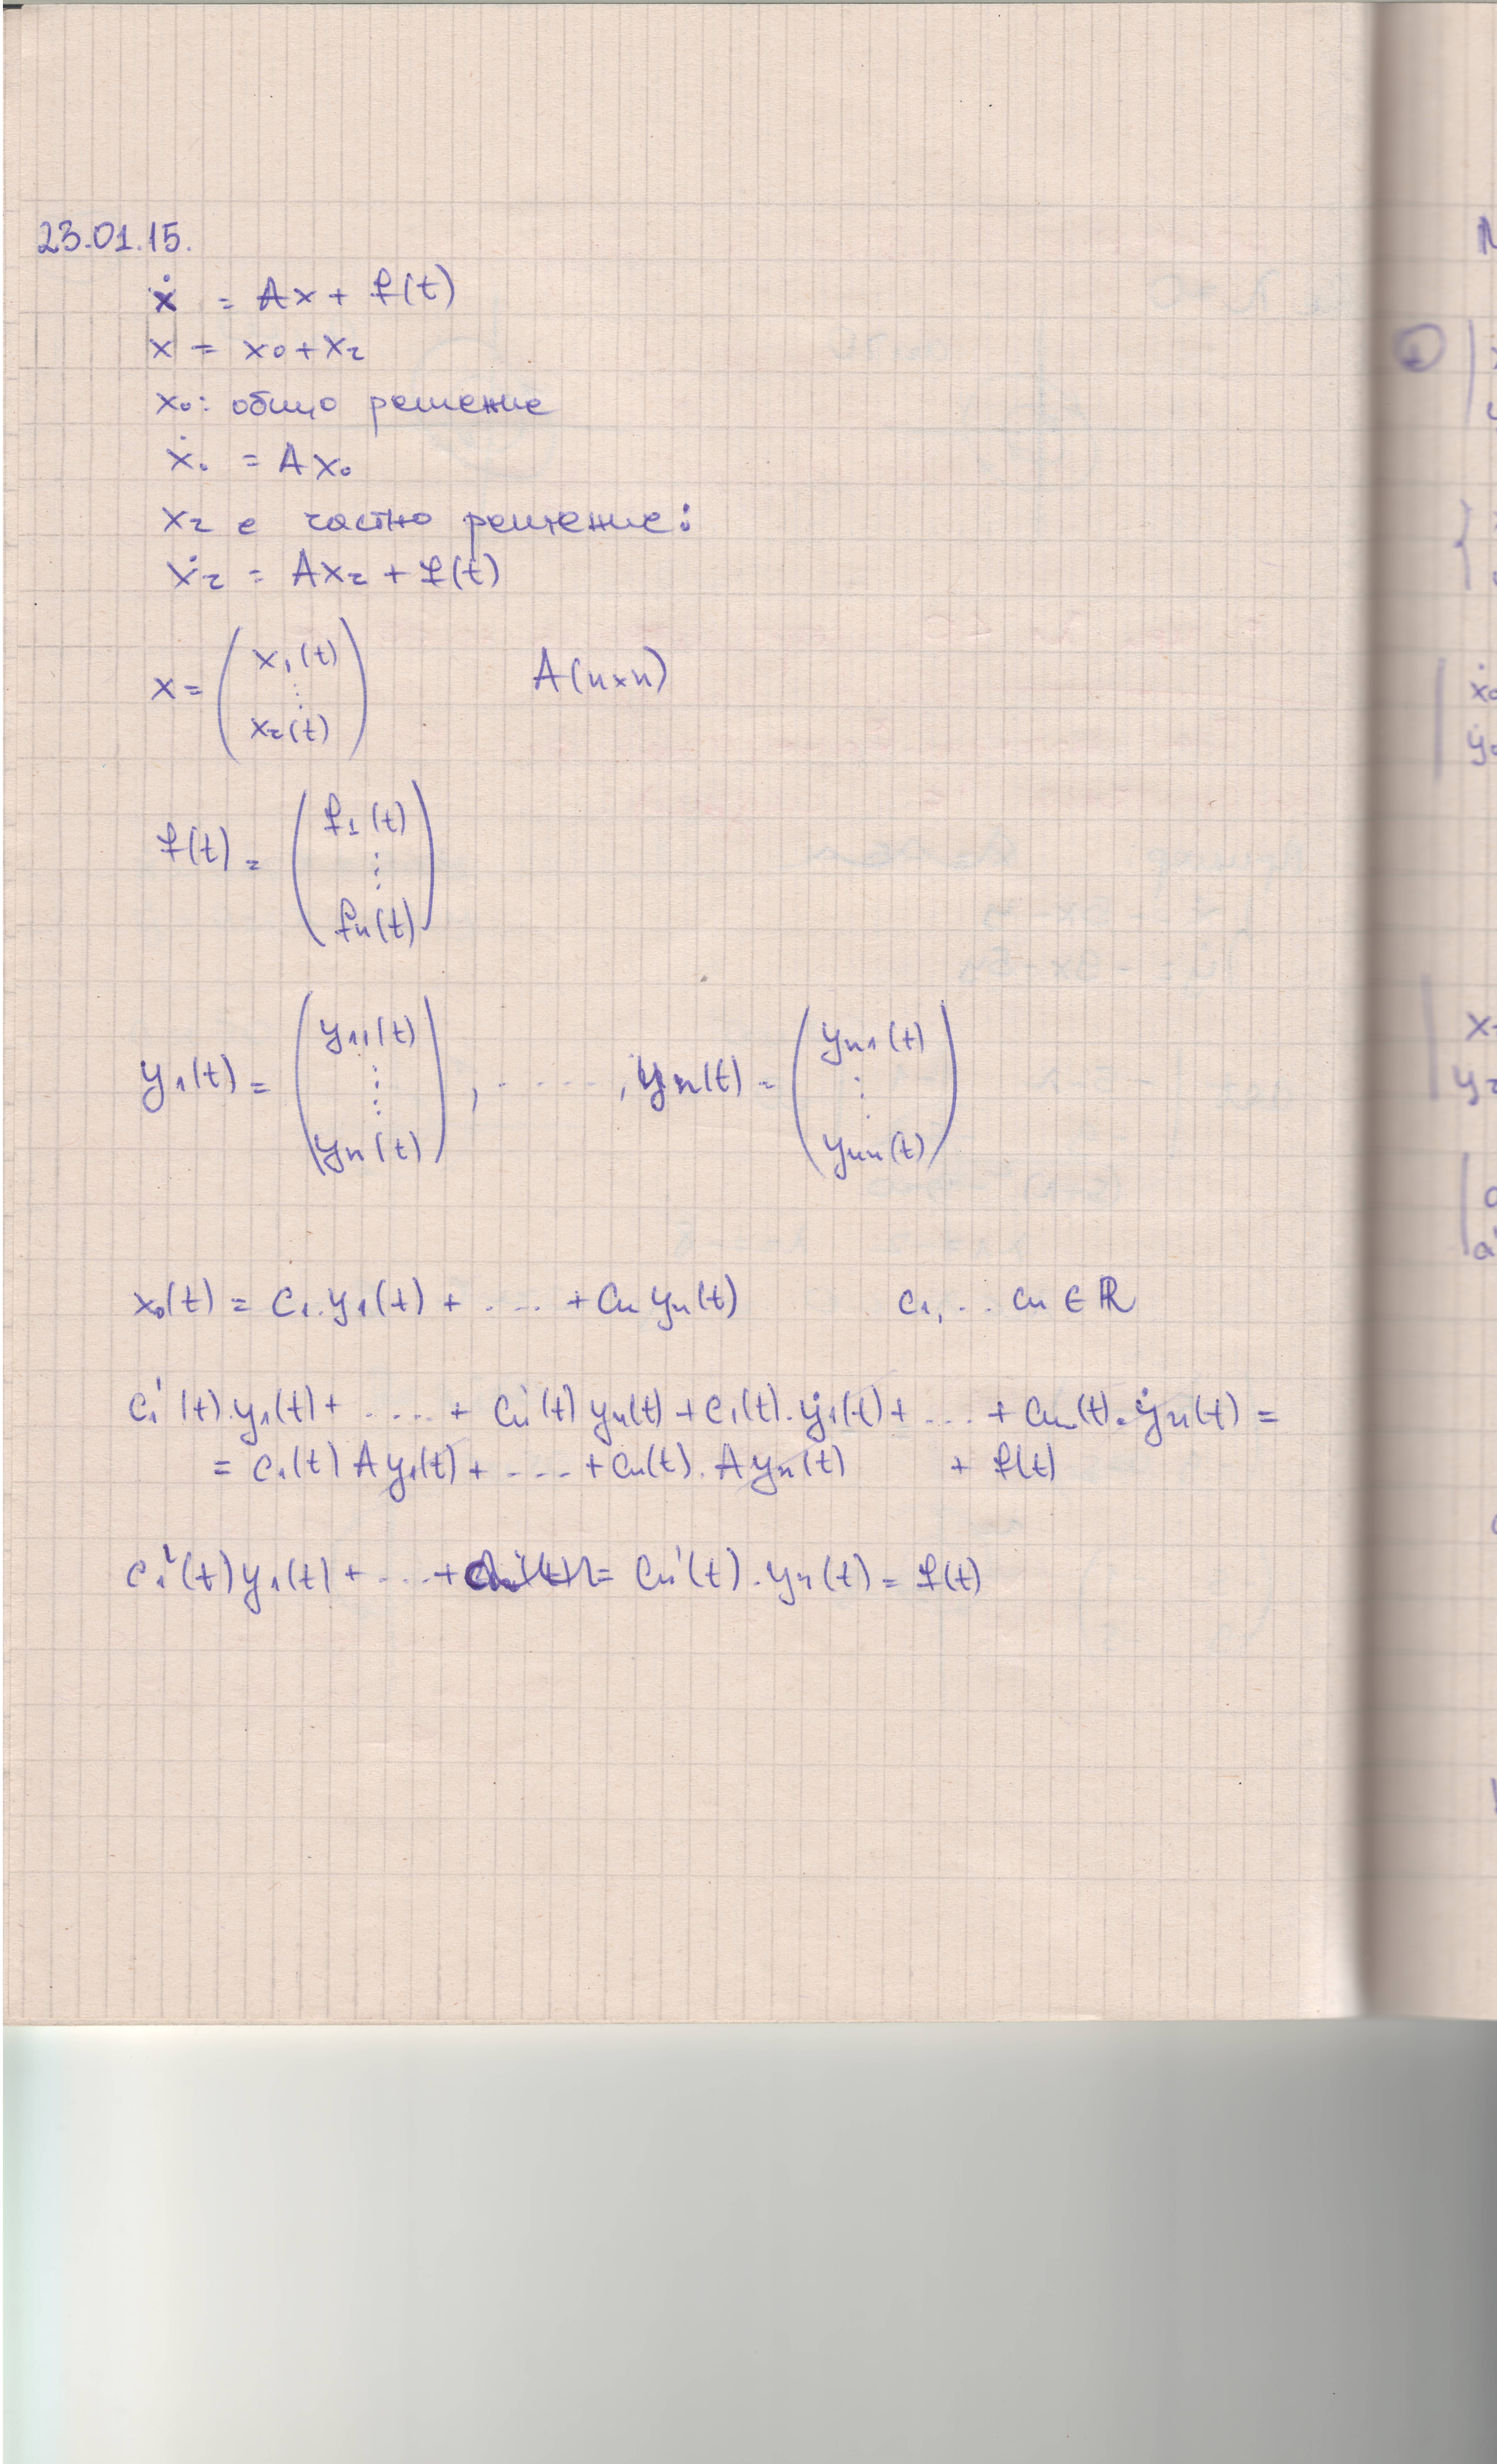 23.01.15.
ẋ = Ax + f(t)
x = x₀ + x₂
x₀: общо решение
ẋ₀ = Ax₀
x₂ е частно решение:
ẋ₂ = Ax₂ + f(t)
x = ( x₁(t) ⋮ x₂(t) ) A(n×n)
f(t) = ( f₁(t) ⋮ fn(t) )
y₁(t) = ( y₁₁(t) ⋮ yn(t) ) , ..... , yn(t) = ( yn₁(t) ⋮ ynn(t) )
x₀(t) = c₁.y₁(t) + .... + cn yn(t) c₁, .. cn ∈ ℝ
c₁'(t).y₁(t) + ..... + cn'(t) yn(t) + c₁(t).ẏ₁(t) + ... + cn(t).ẏn(t) =
= c₁(t) A y₁(t) + .... + cn(t). A yn(t) + f(t)
c₁'(t) y₁(t) + ... + = cn'(t).yn(t) = f(t)